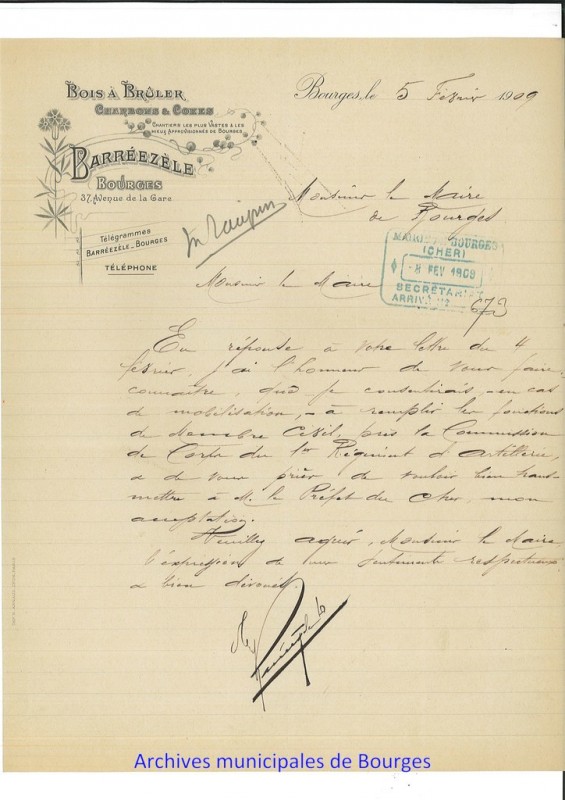 BOIS À BRÛLER
CHARBONS & COKES
CHANTIERS LES PLUS VASTES & LES
MIEUX APPROVISIONNÉS DE BOURGES
BARRÉEZÈLE
BOURGES
37, Avenue de la Gare
Télégrammes
BARRÉEZÈLE-BOURGES
TÉLÉPHONE
Bourges, le 5 Février 1909
Monsieur le Maire
de Bourges
MAIRIE BOURGES
(CHER)
8 FEV 1909
SECRÉTARIAT
ARRIVÉE
673
Monsieur le Maire
En réponse à votre lettre du 4
février, j'ai l'honneur de vous faire
connaître, que je consentirais, en cas
de mobilisation, à remplir les fonctions
de Membre Civil, près la Commission
de Corps du 1er Régiment d'Artillerie,
& de vous prier de vouloir bien trans-
mettre à M. le Préfet du Cher, mon
acceptation.
Veuillez agréer, Monsieur le Maire
l'expression de mes sentiments respectueux
& bien dévoués.
Archives municipales de Bourges